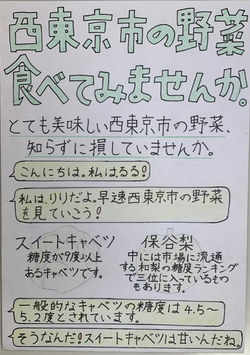 西東京市の野菜
食べてみませんか。
とても美味しい西東京市の野菜、
知らずに損していませんか。
こんにちは。私はるる!
私は、りりだよ。早速西東京市の野菜
を見ていこう!
スイートキャベツ
糖度が9度以上
あるキャベツです。
保谷梨
中には市場に流通
する和梨の糖度ランキング
で三位に入っているもの
もあります。
一般的なキャベツの糖度は4.5〜
5.2度とされています。
そうなんだ!スイートキャベツは甘いんだね。